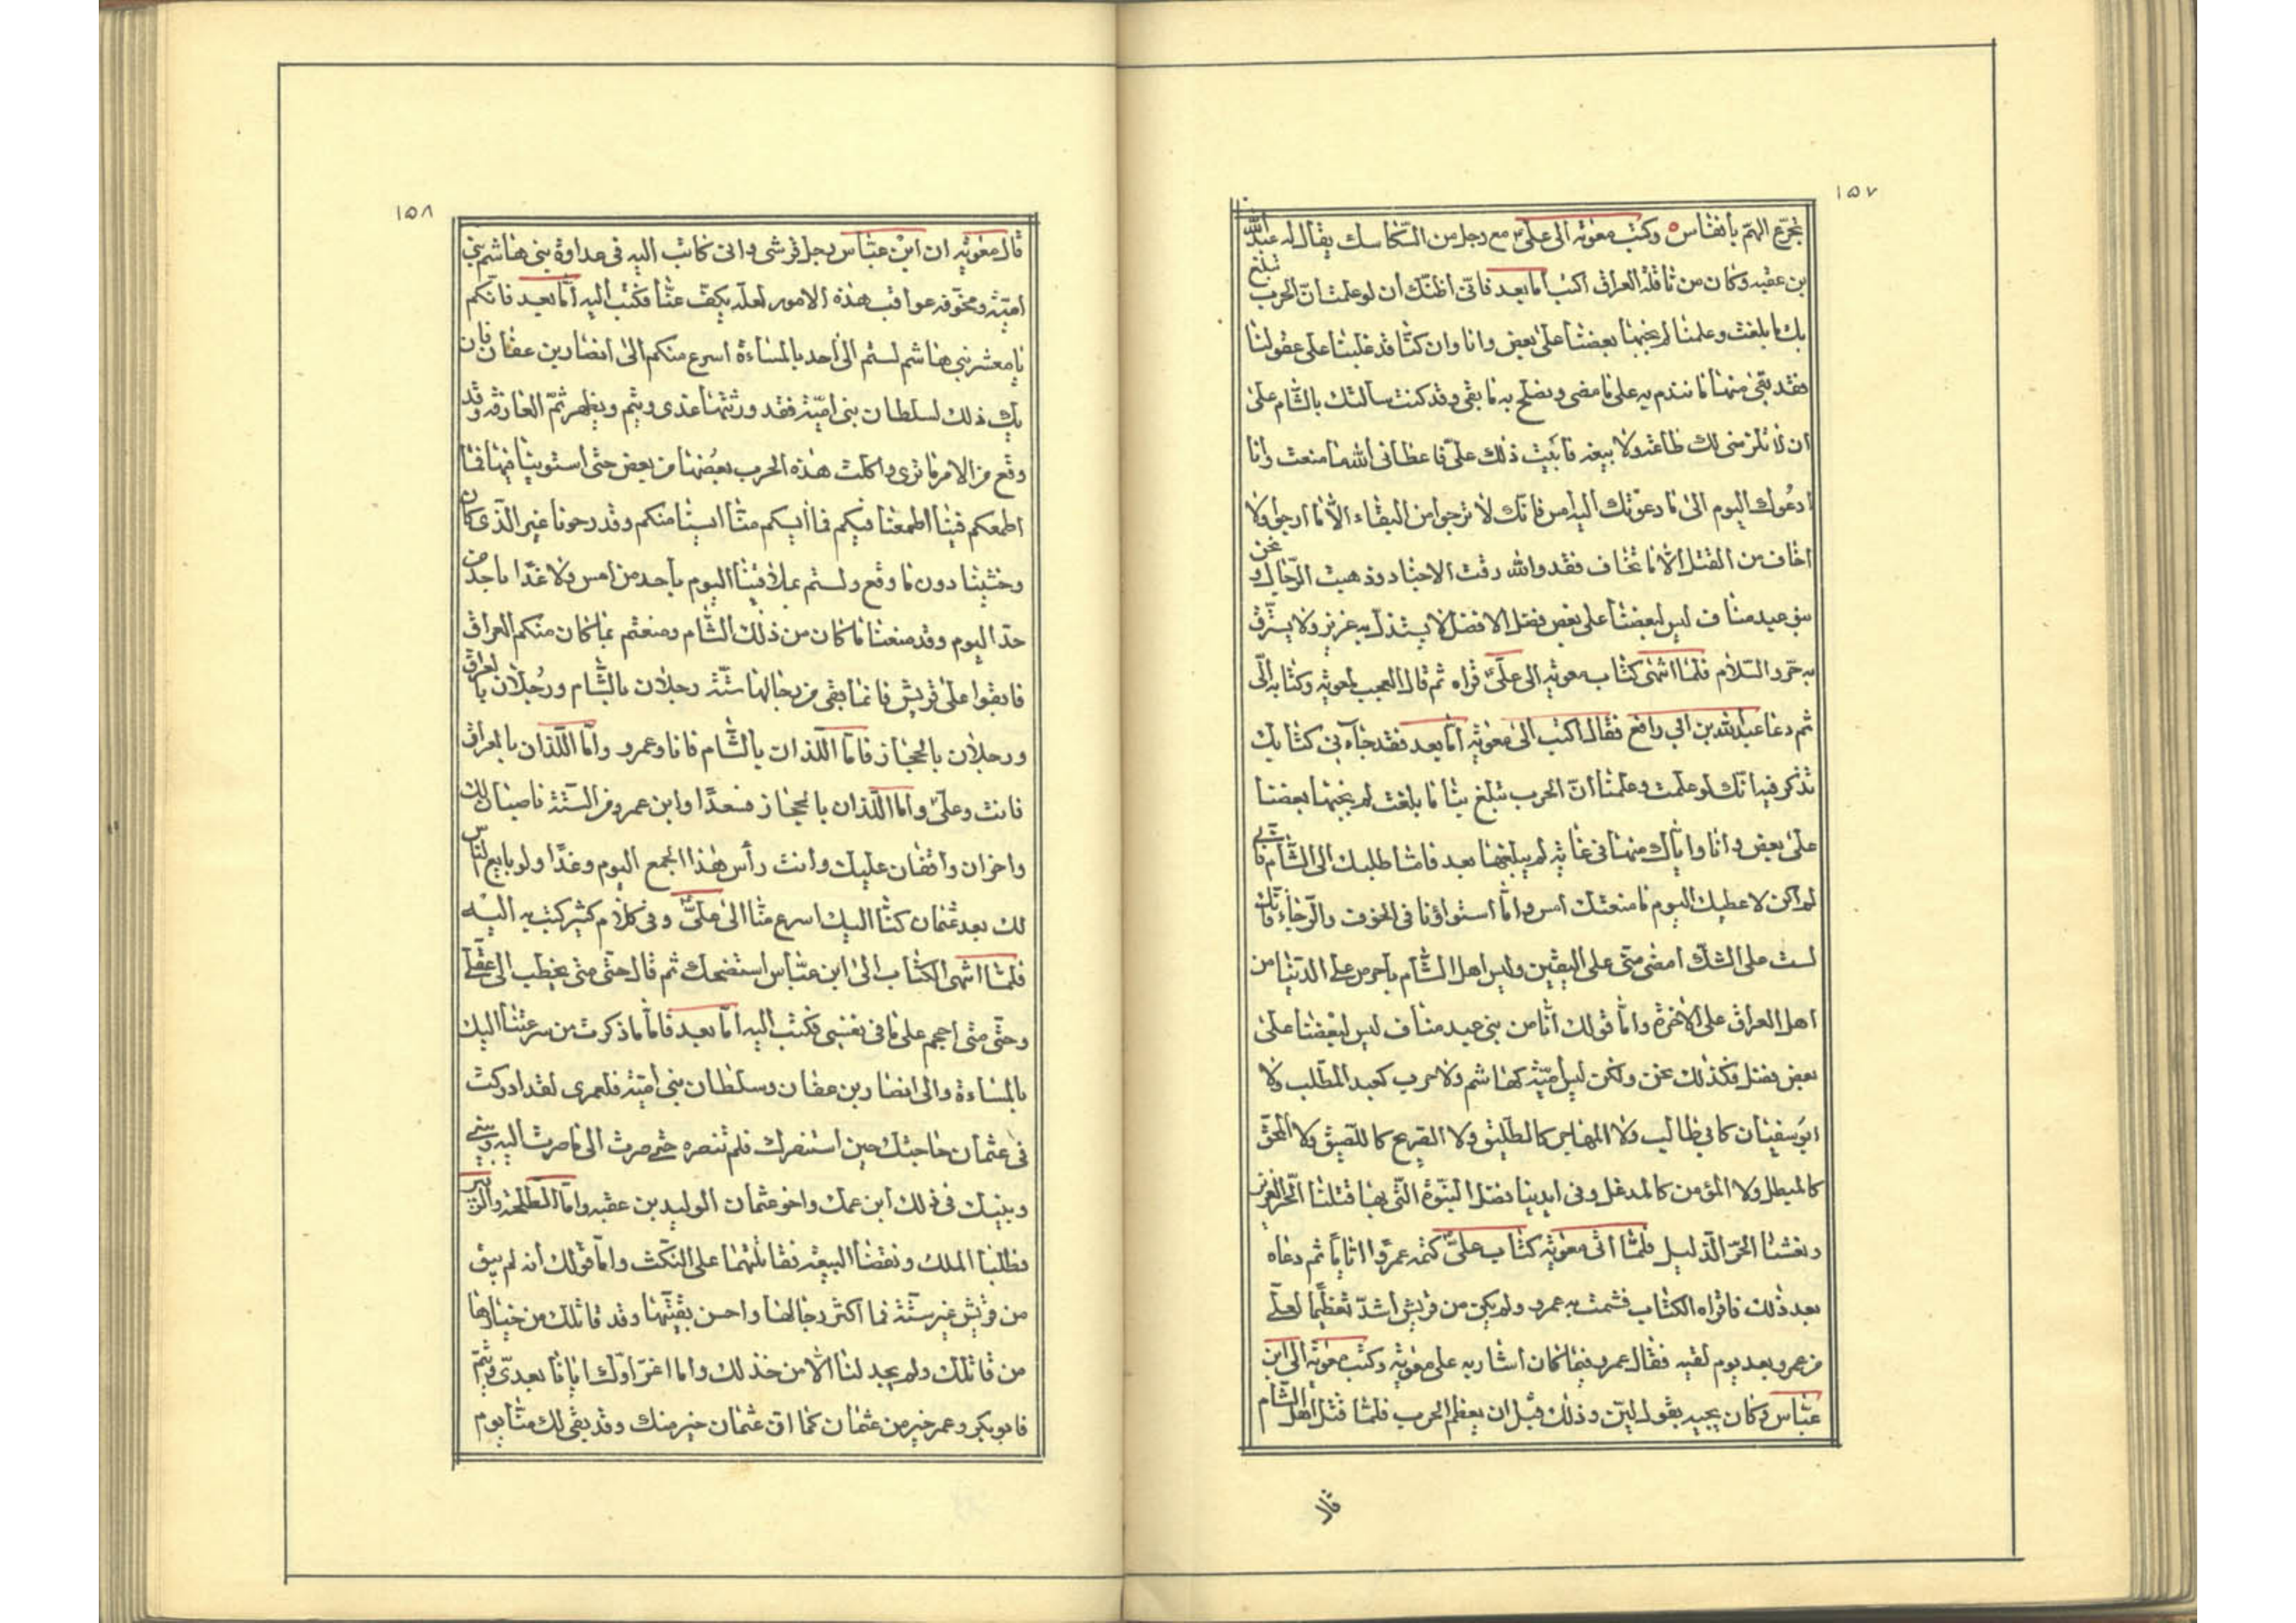 ١٥٧
تجرّع الهمّ بأنفاس وكتب معوية الى علىّ مع رجل من السّكاسك يقال له عبد الله
بن عقبه وكان من ناقلة العراق اكتب امّا بعد فانّى اظنّك أن لو علمت انّ الحرب تبلغ
بك ما بلغت وعلمنا لم يجنها بعضنا على بعض وانا وان كنّا قد غلبنا على عقولنا
فقد بقى منها ما نندم به على ما مضى ونصلح به ما بقى وقد كنت سألتك بالشّام على
ان لا تلزمنى لك طاعة ولا بيعه فأبيت ذلك علىّ فاعطانى الله ما منعت وانا
ادعوك اليوم الى ما دعوتك اليه امس فانّك لا ترجوا من البقاء الّا ما ارجوا ولا
اخاف من القتل الّا ما تخاف فقد والله رقت الاجناد وذهبت الرّجال ونحن
بنو عبد مناف ليس لبعضنا على بعض فضل الا فضل لا يستذلّ به عزيز ولا يسترقّ
به حر والسّلام فلمّا انتهى كتاب معوية الى علىّ قرأه ثم قال العجب لمعوية وكتابه الىّ
ثم دعا عبيد الله بن ابي رافع فقال اكتب الى معوية امّا بعد فقد جاءنى كتابك
تذكر فيه انّك لو علمت وعلمنا انّ الحرب تبلغ بنا ما بلغت لم يجنها بعضنا
على بعض وانا وايّاك منها فى غاية لم يبلغها بعد فامّا طلبك الى الشّام فانّى
لم اكن لاعطيك اليوم ما منعتك امس وامّا استواؤنا فى الخوف والرّجاء فانّك
لست على الشّك امضى منّى على اليقين وليس اهل الشّام باحرص على الدّنيا من
اهل العراق على الاخرة وامّا قولك انّا من بنى عبد مناف ليس لبعضنا على
بعض فضل فكذلك نحن ولكن ليس اميّة كهاشم ولا حرب كعبد المطّلب ولا
ابو سفيان كابى طالب ولا المهاجر كالطّليق ولا الصّريح كاللّصيق ولا المحقّ
كالمبطل ولا المؤمن كالمدغل وفى ايدينا فضل النّبوّة الّتى بها قتلنا الحرّ العزيز
ونعشنا الحرّ الذليل فلمّا اتى معوية كتاب علىّ كتمه عمروا ايّاماً ثم دعاه
بعد ذلك فاقراه الكتاب فشمت به عمرو ولم يكن من قريش اشدّ تعظيما لعلى
من عمرو بعد يوم لقيه فقال عمرو فيما كان اشار به على معوية وكتب معوية الى ابن
عبّاس وكان يجيبه بقول ليّن وذلك قبل ان يعظم الحرب فلمّا قتل اهل الشّام
قال
١٥٨
قال معوية ان ابن عبّاس رجل قرشى وانى كاتب اليه فى عداوة بنى هاشم بنى
اميّة ومخوّفه عواقب هذه الامور لعلّه يكفّ عنّا فكتب اليه امّا بعد فانّكم
يا معشر بنى هاشم لستم الى احد بالمساءة اسرع منكم الى انصار بن عفّان فان
يك ذلك لسلطان بنى اميّة فقد ورثتها عدى وتيم ويظهر ثمّ العارفه وقد
وقع من الامر ما ترى واكلت هذه الحرب بعضها من بعض حتى استوينا فيها فما
اطمعكم فينا اطمعنا فيكم فما أيسكم منّا ايسنا منكم وقد رجونا غير الّذى كان
وخشينا دون ما وقع ولستم بملاقينا اليوم بأحد من امس ولا غدا بأحد من
حدّ اليوم وقد منعنا ما كان من ذلك الشّام ومنعتم بما كان منكم العراق
فابقوا على قريش فانّما بقى من رجالها ستّة رجلان بالشّام ورجلان بالعراق
ورجلان بالحجاز فامّا اللّذان بالشّام فانا وعمرو وامّا اللّذان بالعراق
فانت وعلىّ وامّا اللّذان بالحجاز فسعدا وابن عمرو من السّتّة ناصبان لك
واخران واقفان عليك وانت رأس هذا الجمع اليوم وغدا ولو بايع النّاس
لك بعد عثمان كنّا اليك اسرع منّا الى علىّ وفى كلام كثير كتب به اليه
فلمّا انتهى الكتاب الى ابن عبّاس استضحك ثم قال حتّى متى يخطب الى عقلى
وحتّى متى اجمجم على ما فى نفسى فكتب اليه امّا بعد فامّا ما ذكرت من سرعتنا اليك
بالمساءة والى انصار بن عفان وسلطان بنى اميّة فلعمرى لقد ادركت
فى عثمان حاجتك حين استنصرك فلم تنصره حتى صرت الى ما صرت اليه وبينى
وبينك فى ذلك ابن عمك واخو عثمان الوليد بن عقبه وامّا طلحة والزّبير
فطلبا الملك ونقضا البيعة فقاتلتهما على النّكث وامّا قولك أنه لم يبق
من قريش غير ستّة فما اكثر رجالها واحسن بقيّتها وقد قاتلك من خيارها
من قاتلك ولم يجد لنا الّا من خذلك واما اغراؤك ايّانا بعدىّ وتيم
فابو بكر وعمر خير من عثمان كما انّ عثمان خير منك وقد بقى لك منّا يوم